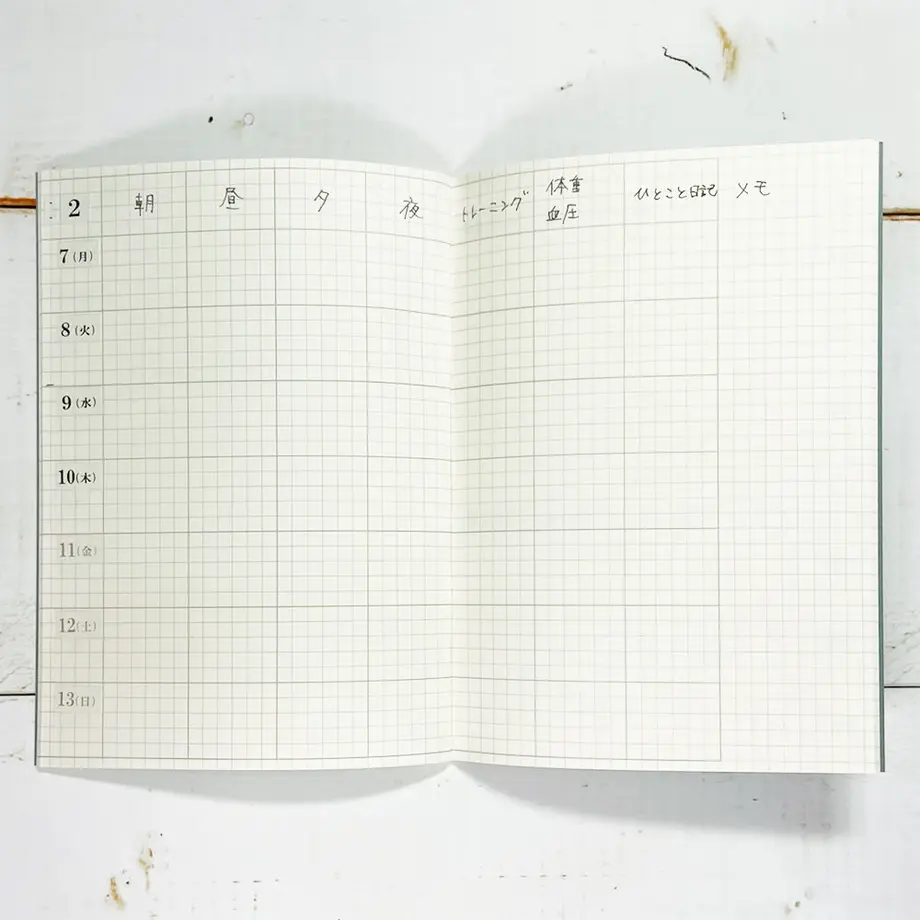 2 朝 昼 夕 夜 トレーニング 体重 ひとこと日記 メモ
血圧
7(月)
8(火)
9(水)
10(木)
11(金)
12(土)
13(日)